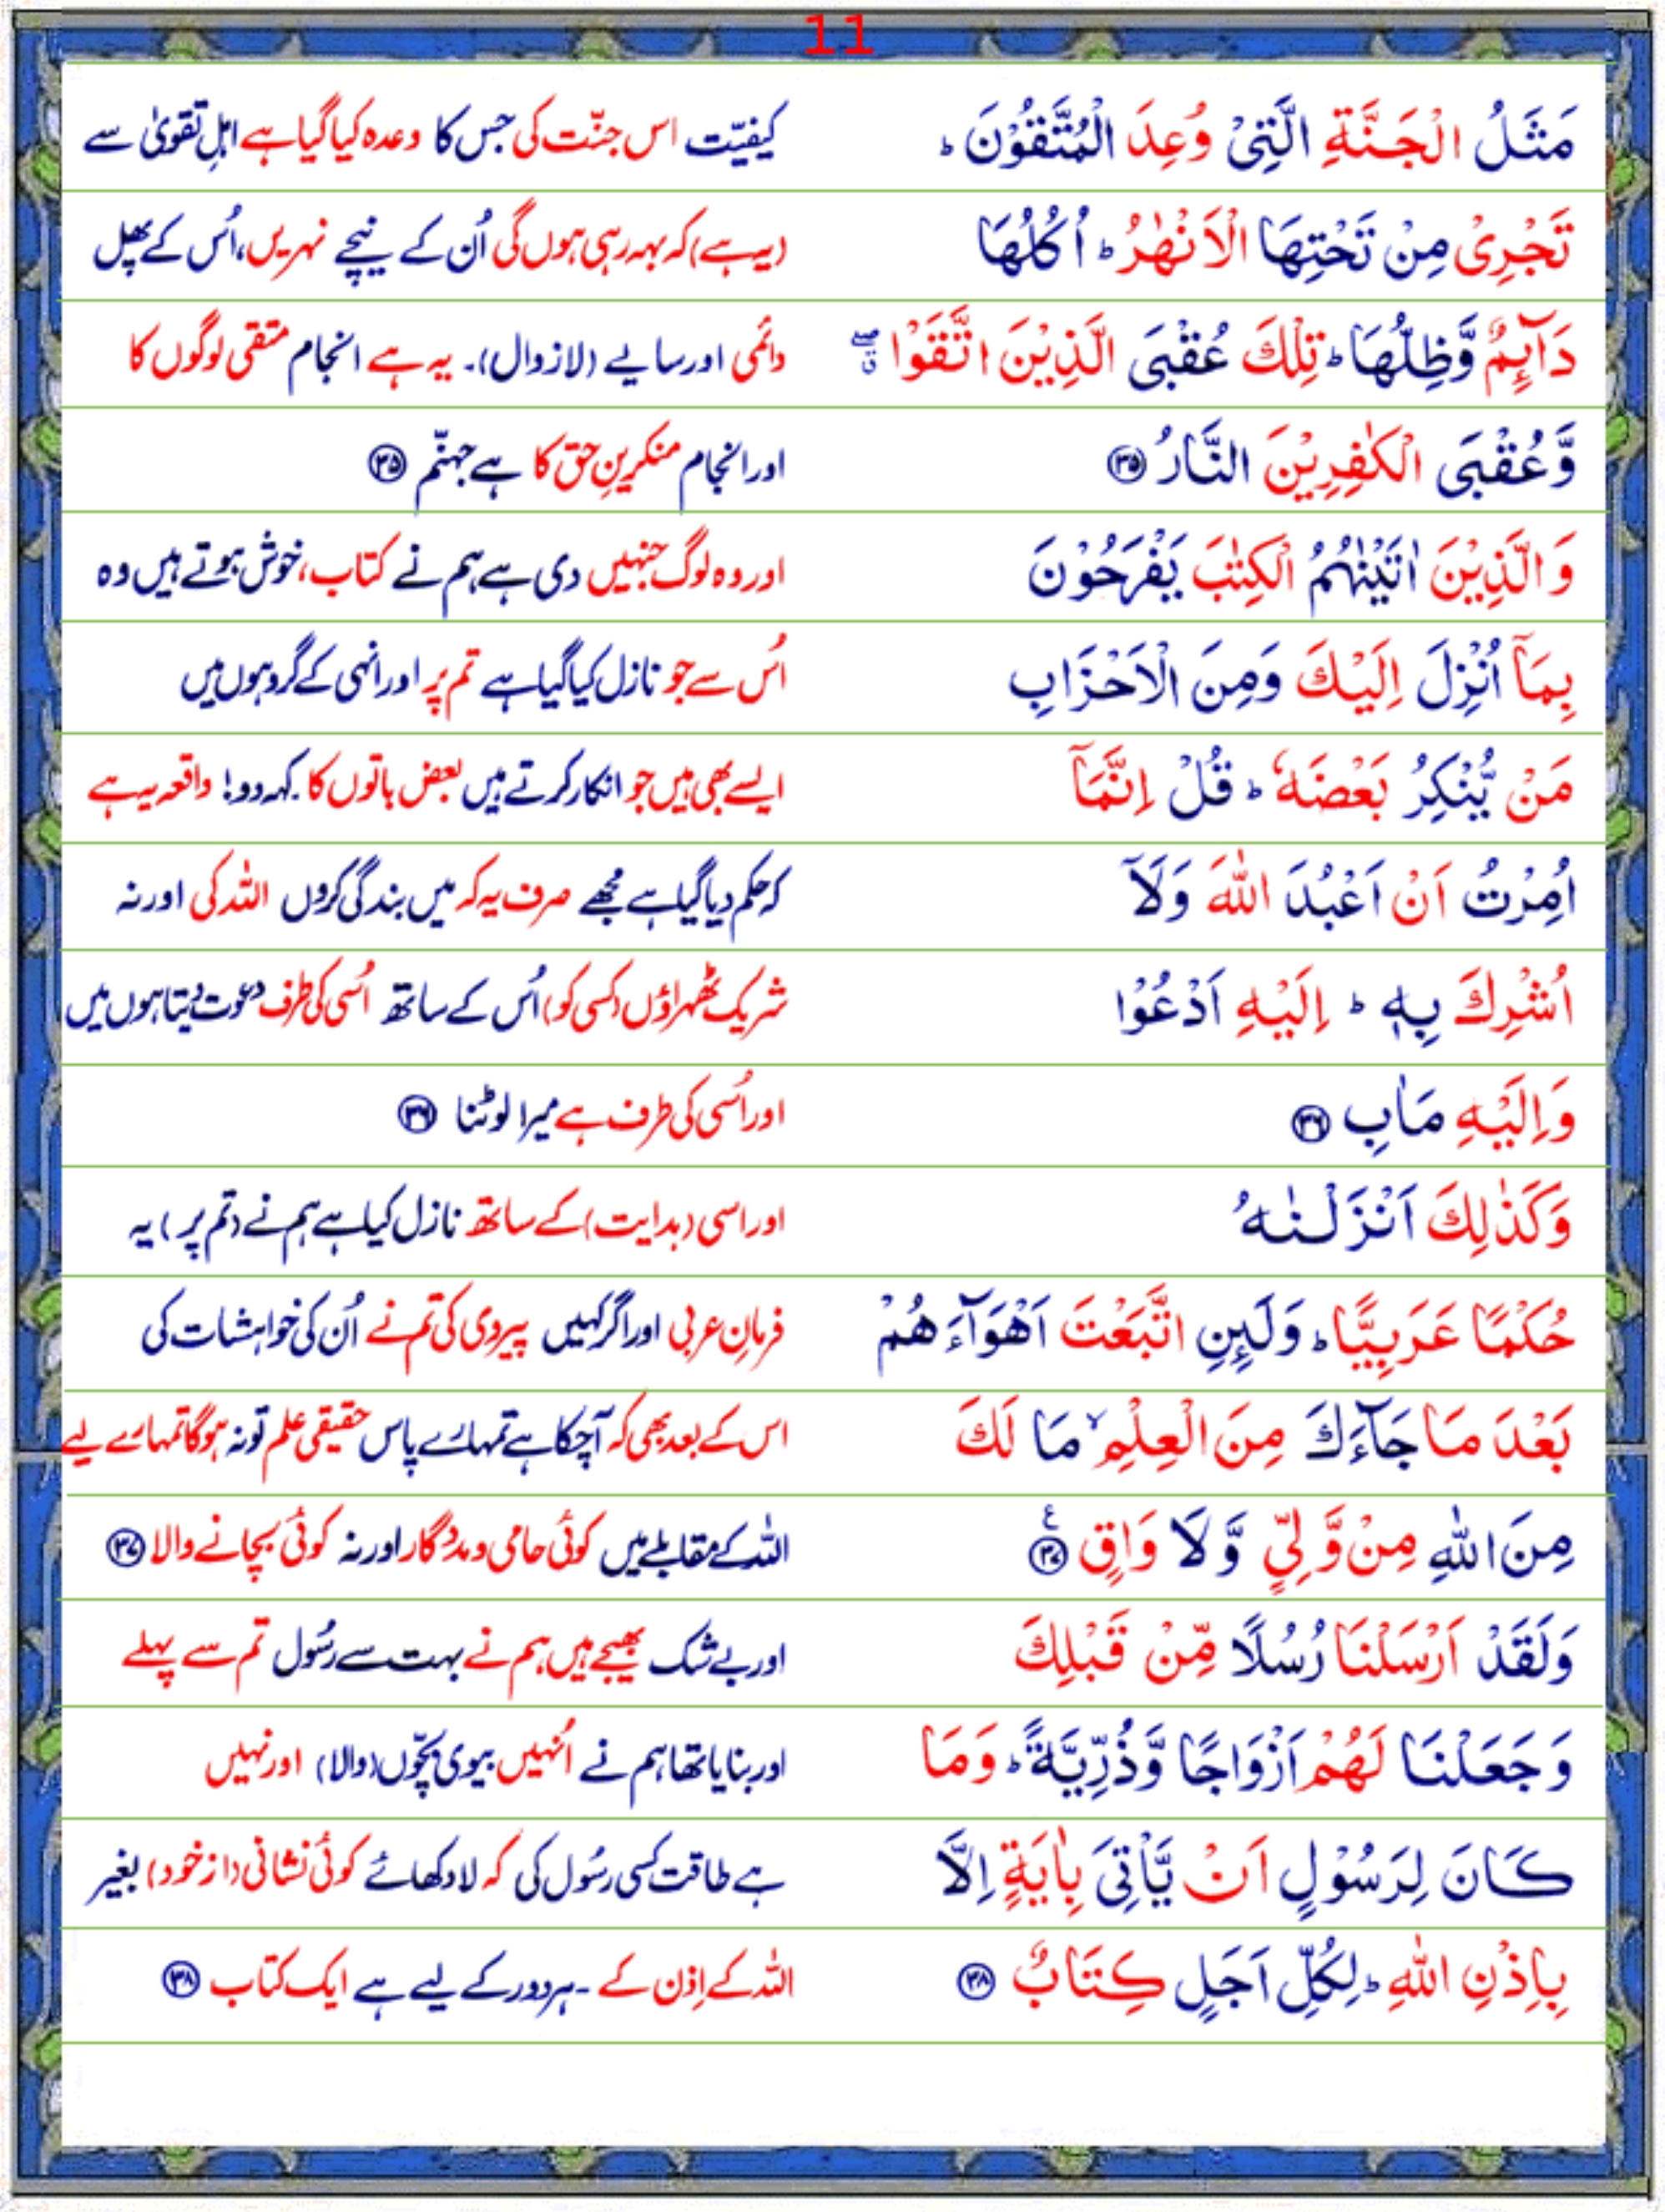 11
مَثَلُ الْجَنَّةِ الَّتِیْ وُعِدَ الْمُتَّقُوْنَ ؕ کیفیّت اس جنّت کی جس کا وعدہ کیا گیا ہے اہلِ تقویٰ سے
تَجْرِیْ مِنْ تَحْتِهَا الْاَنْهٰرُ ؕ اُكُلُهَا (یہ ہے) کہ بہہ رہی ہوں گی اُن کے نیچے نہریں، اُس کے پھل
دَآىِٕمٌ وَّظِلُّهَا ؕ تِلْكَ عُقْبَی الَّذِیْنَ اتَّقَوْا ۖۗ دائمی اور سایے (لازوال)۔ یہ ہے انجام متقی لوگوں کا
وَّعُقْبَی الْكٰفِرِیْنَ النَّارُ ۳۵ اور انجام منکرینِ حق کا ہے جہنّم ۳۵
وَالَّذِیْنَ اٰتَیْنٰهُمُ الْكِتٰبَ یَفْرَحُوْنَ اور وہ لوگ جنہیں دی ہے ہم نے کتاب، خوش ہوتے ہیں وہ
بِمَاۤ اُنْزِلَ اِلَیْكَ وَمِنَ الْاَحْزَابِ اُس سے جو نازل کیا گیا ہے تم پر اور انہی کے گروہوں میں
مَنْ یُّنْكِرُ بَعْضَهٗ ؕ قُلْ اِنَّمَاۤ ایسے بھی ہیں جو انکار کرتے ہیں بعض باتوں کا۔ کہہ دو! واقعہ یہ ہے
اُمِرْتُ اَنْ اَعْبُدَ اللّٰهَ وَلَاۤ کہ حکم دیا گیا ہے مجھے صرف یہ کہ میں بندگی کروں اللہ کی اور نہ
اُشْرِكَ بِهٖ ؕ اِلَیْهِ اَدْعُوْا شریک ٹھہراؤں (کسی کو) اُس کے ساتھ اُسی کی طرف دعوت دیتا ہوں میں
وَاِلَیْهِ مَاٰبِ ۳۶ اور اُسی کی طرف ہے میرا لوٹنا ۳۶
وَكَذٰلِكَ اَنْزَلْنٰهُ اور اسی (ہدایت) کے ساتھ نازل کیا ہے ہم نے (تم پر) یہ
حُكْمًا عَرَبِیًّا ؕ وَلَىِٕنِ اتَّبَعْتَ اَهْوَآءَهُمْ فرمانِ عربی اور اگر کہیں پیروی کی تم نے اُن کی خواہشات کی
بَعْدَ مَا جَآءَكَ مِنَ الْعِلْمِ ۙ مَا لَكَ اس کے بعد بھی کہ آچکا ہے تمہارے پاس حقیقی علم تو نہ ہوگا تمہارے لیے
مِنَ اللّٰهِ مِنْ وَّلِیٍّ وَّلَا وَاقٍ ۳۷ ع اللہ کے مقابلے میں کوئی حامی و مددگار اور نہ کوئی بچانے والا ۳۷
وَلَقَدْ اَرْسَلْنَا رُسُلًا مِّنْ قَبْلِكَ اور بے شک بھیجے ہیں ہم نے بہت سے رسُول تم سے پہلے
وَجَعَلْنَا لَهُمْ اَزْوَاجًا وَّذُرِّیَّةً ؕ وَمَا اور بنایا تھا ہم نے اُنہیں بیوی بچّوں (والا) اور نہیں
كَانَ لِرَسُوْلٍ اَنْ یَّاْتِیَ بِاٰیَةٍ اِلَّا ہے طاقت کسی رسُول کی کہ لا دکھائے کوئی نشانی (از خود) بغیر
بِاِذْنِ اللّٰهِ ؕ لِكُلِّ اَجَلٍ كِتَابٌ ۳۸ اللہ کے اِذن کے۔ ہر دور کے لیے ہے ایک کتاب ۳۸